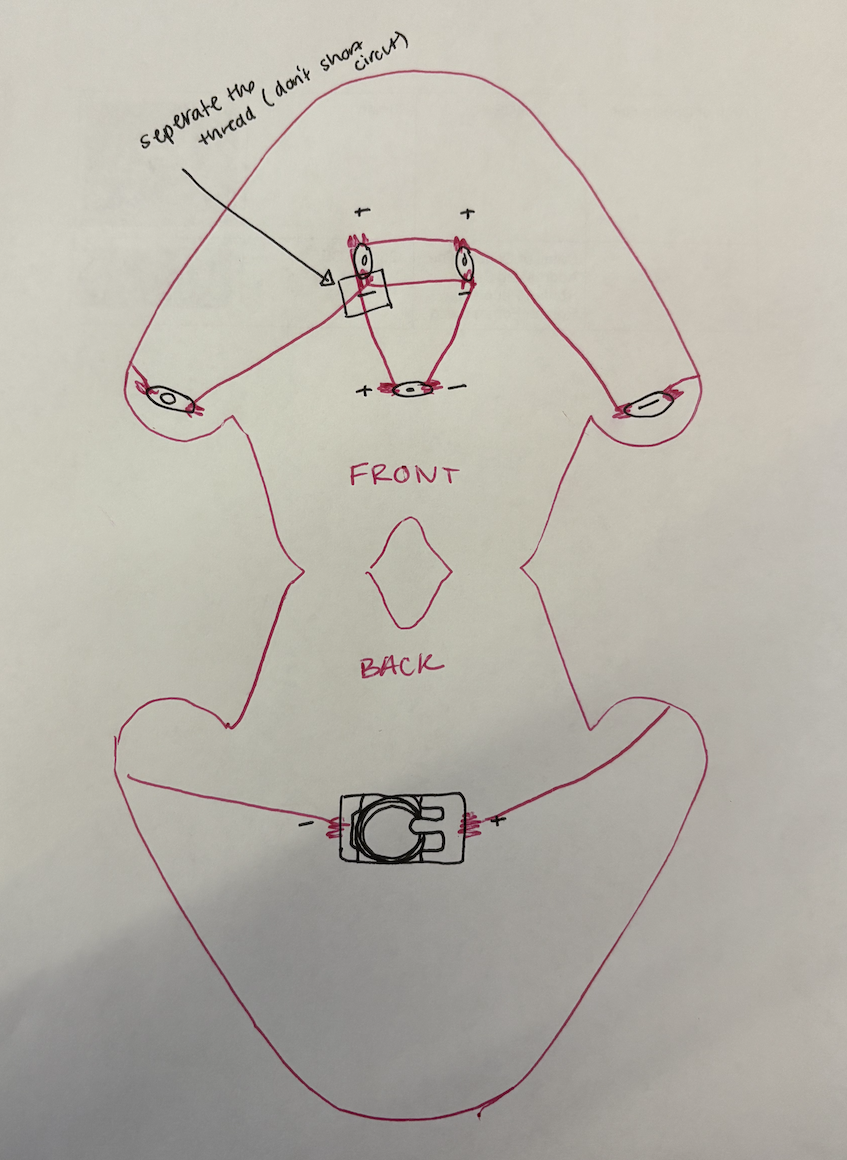 seperate the
thread (don't short
circut)
+ +
- -
+ -
FRONT
BACK
- +